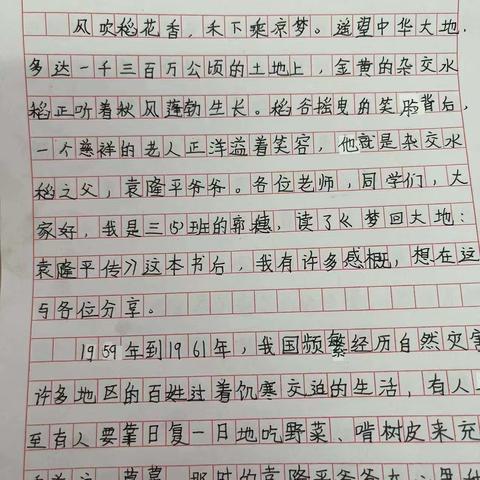 风吹稻花香，禾下乘凉梦。遥望中华大地，
多达一千三百万公顷的土地上，金黄的杂交水
稻正听着秋风蓬勃生长。稻谷摇曳的笑脸背后，
一个慈祥的老人正洋溢着笑容，他就是杂交水
稻之父，袁隆平爷爷。各位老师，同学们，大
家好，我是三(5)班的郭穗，读了《梦回大地：
袁隆平传》这本书后，我有许多感概，想在这
与各位分享。
1959年到1961年，我国频繁经历自然灾害
许多地区的百姓过着饥寒交迫的生活，有人
至有人要靠日复一日地吃野菜、啃树皮来充
那时的袁隆平爷爷